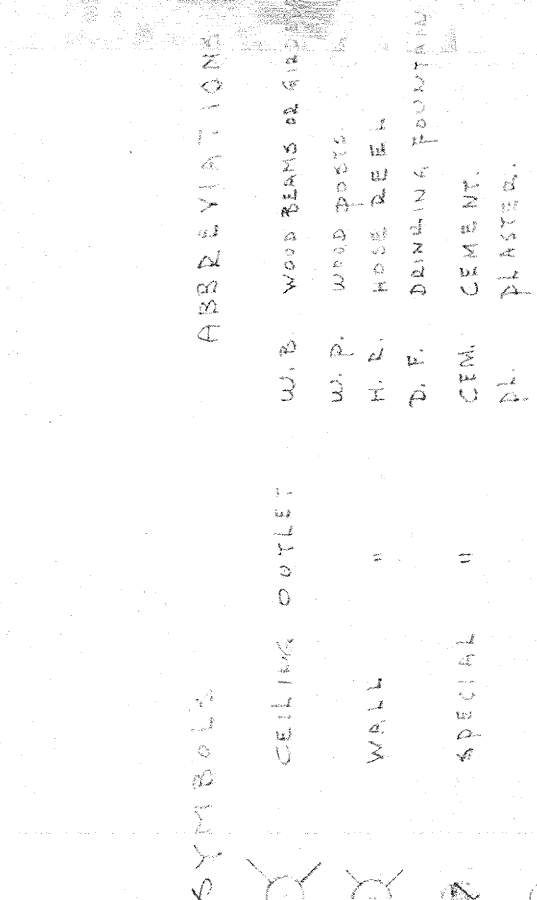 SYMBOLS
CEILING OUTLET
WALL "
SPECIAL "
ABBREVIATIONS
W. B. WOOD BEAMS OR GIRDER
W. P. WOOD POSTS.
H. R. HOSE REEL
D. F. DRINKING FOUNTAIN
CEM. CEMENT.
PL. PLASTER.